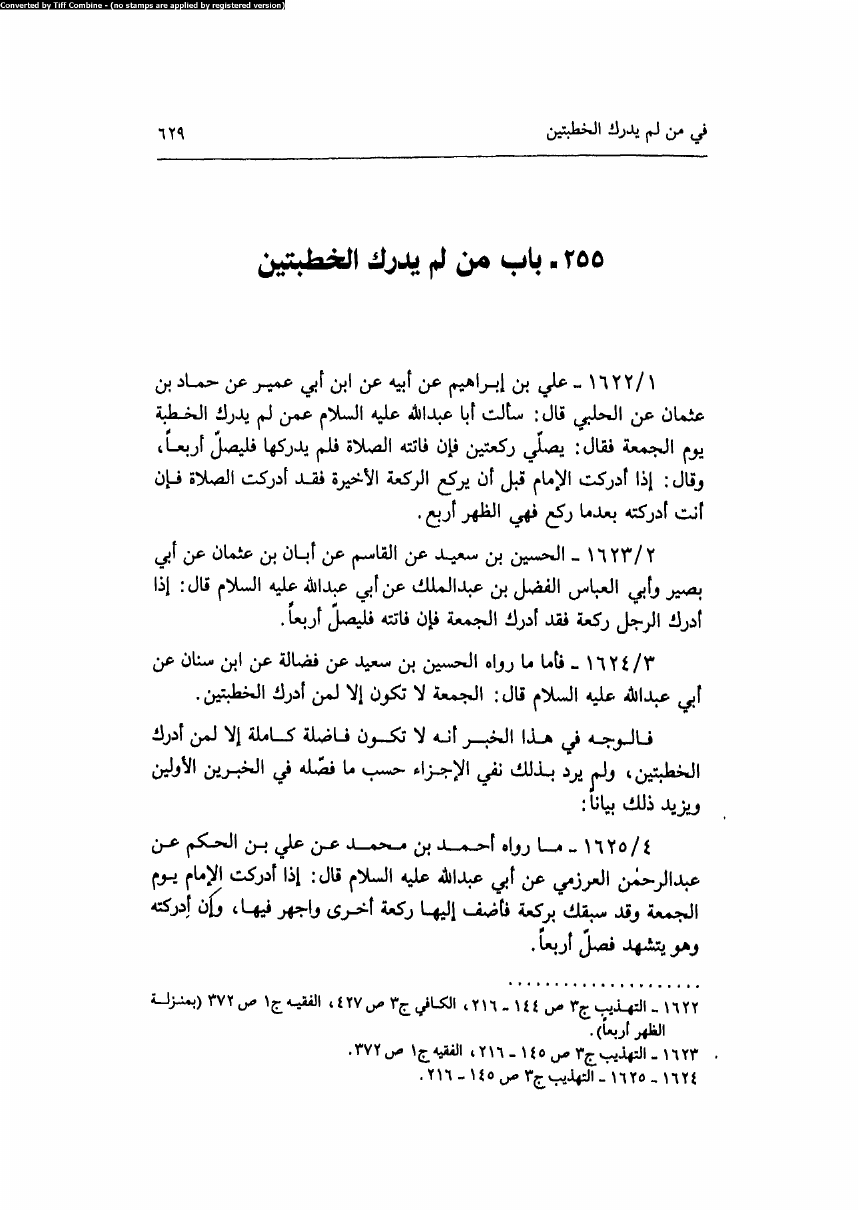 Converted by Tiff Combine - (no stamps are applied by registered version)
في من لم يدرك الخطبتين ٦٢٩
٢٥٥ ـ باب من لم يدرك الخطبتين
١٦٢٢/١ ـ علي بن إبراهيم عن أبيه عن ابن أبي عمير عن حماد بن
عثمان عن الحلبي قال: سألت أبا عبدالله عليه السلام عمن لم يدرك الخطبة
يوم الجمعة فقال: يصلّي ركعتين فإن فاتته الصلاة فلم يدركها فليصلّ أربعاً،
وقال: إذا أدركت الإمام قبل أن يركع الركعة الأخيرة فقد أدركت الصلاة فإن
أنت أدركته بعدما ركع فهي الظهر أربع.
١٦٢٣/٢ ـ الحسين بن سعيد عن القاسم عن أبان بن عثمان عن أبي
بصير وأبي العباس الفضل بن عبدالملك عن أبي عبدالله عليه السلام قال: إذا
أدرك الرجل ركعة فقد أدرك الجمعة فإن فاتته فليصلّ أربعاً.
١٦٢٤/٣ ـ فأما ما رواه الحسين بن سعيد عن فضالة عن ابن سنان عن
أبي عبدالله عليه السلام قال: الجمعة لا تكون إلا لمن أدرك الخطبتين.
فالوجه في هذا الخبر أنه لا تكون فاضلة كاملة إلا لمن أدرك
الخطبتين، ولم يرد بذلك نفي الإجزاء حسب ما فصّله في الخبرين الأولين
ويزيد ذلك بياناً:
١٦٢٥/٤ ـ ما رواه أحمد بن محمد عن علي بن الحكم عن
عبدالرحمٰن العرزمي عن أبي عبدالله عليه السلام قال: إذا أدركت الإمام يوم
الجمعة وقد سبقك بركعة فأضف إليها ركعة أخرى واجهر فيها، وإن أدركته
وهو يتشهد فصلّ أربعاً.
١٦٢٢ ـ التهذيب ج٣ ص ١٤٤ ـ ٢١٦، الكافي ج٣ ص ٤٢٧، الفقيه ج١ ص ٣٧٢ (بمنزلة
الظهر أربعاً).
١٦٢٣ ـ التهذيب ج٣ ص ١٤٥ ـ ٢١٦، الفقيه ج١ ص ٣٧٢.
١٦٢٤ ـ ١٦٢٥ ـ التهذيب ج٣ ص ١٤٥ ـ ٢١٦.